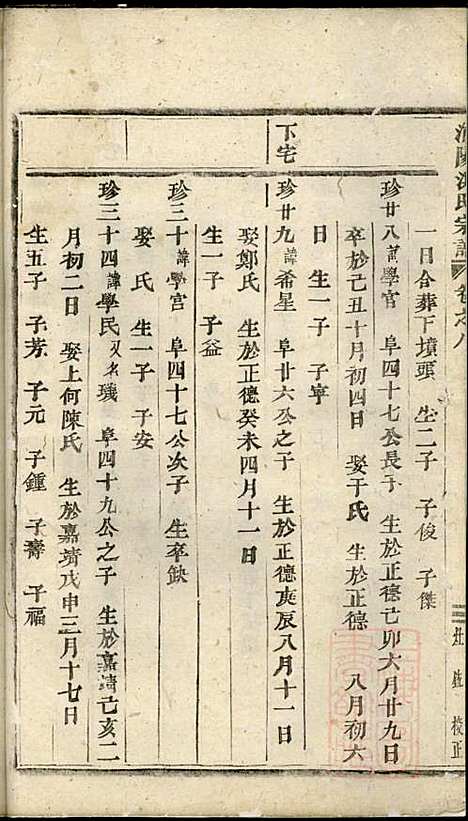 宗譜 卷之八
一日合葬下墳頭 生二子 子俊 子傑
珍廿八諱學官 阜四十七公長子 生於正德己卯六月廿九日
卒於己丑十月初四日 娶于氏 生於正德 八月初六
日 生一子 子寧
下宅
珍廿九諱希星 阜廿六公之子 生於正德庚辰八月十一日
娶鄭氏 生於正德癸未四月十一日
生一子 子益
珍三十諱學宫 阜四十七公次子 生卒缺
娶 氏 生一子 子安
珍三十四諱學民又名璣 阜四十九公之子 生於嘉靖己亥二
月初二日 娶上何陳氏 生於嘉靖戊申三月十七日
生五子 子芳 子元 子鍾 子壽 子福
校正